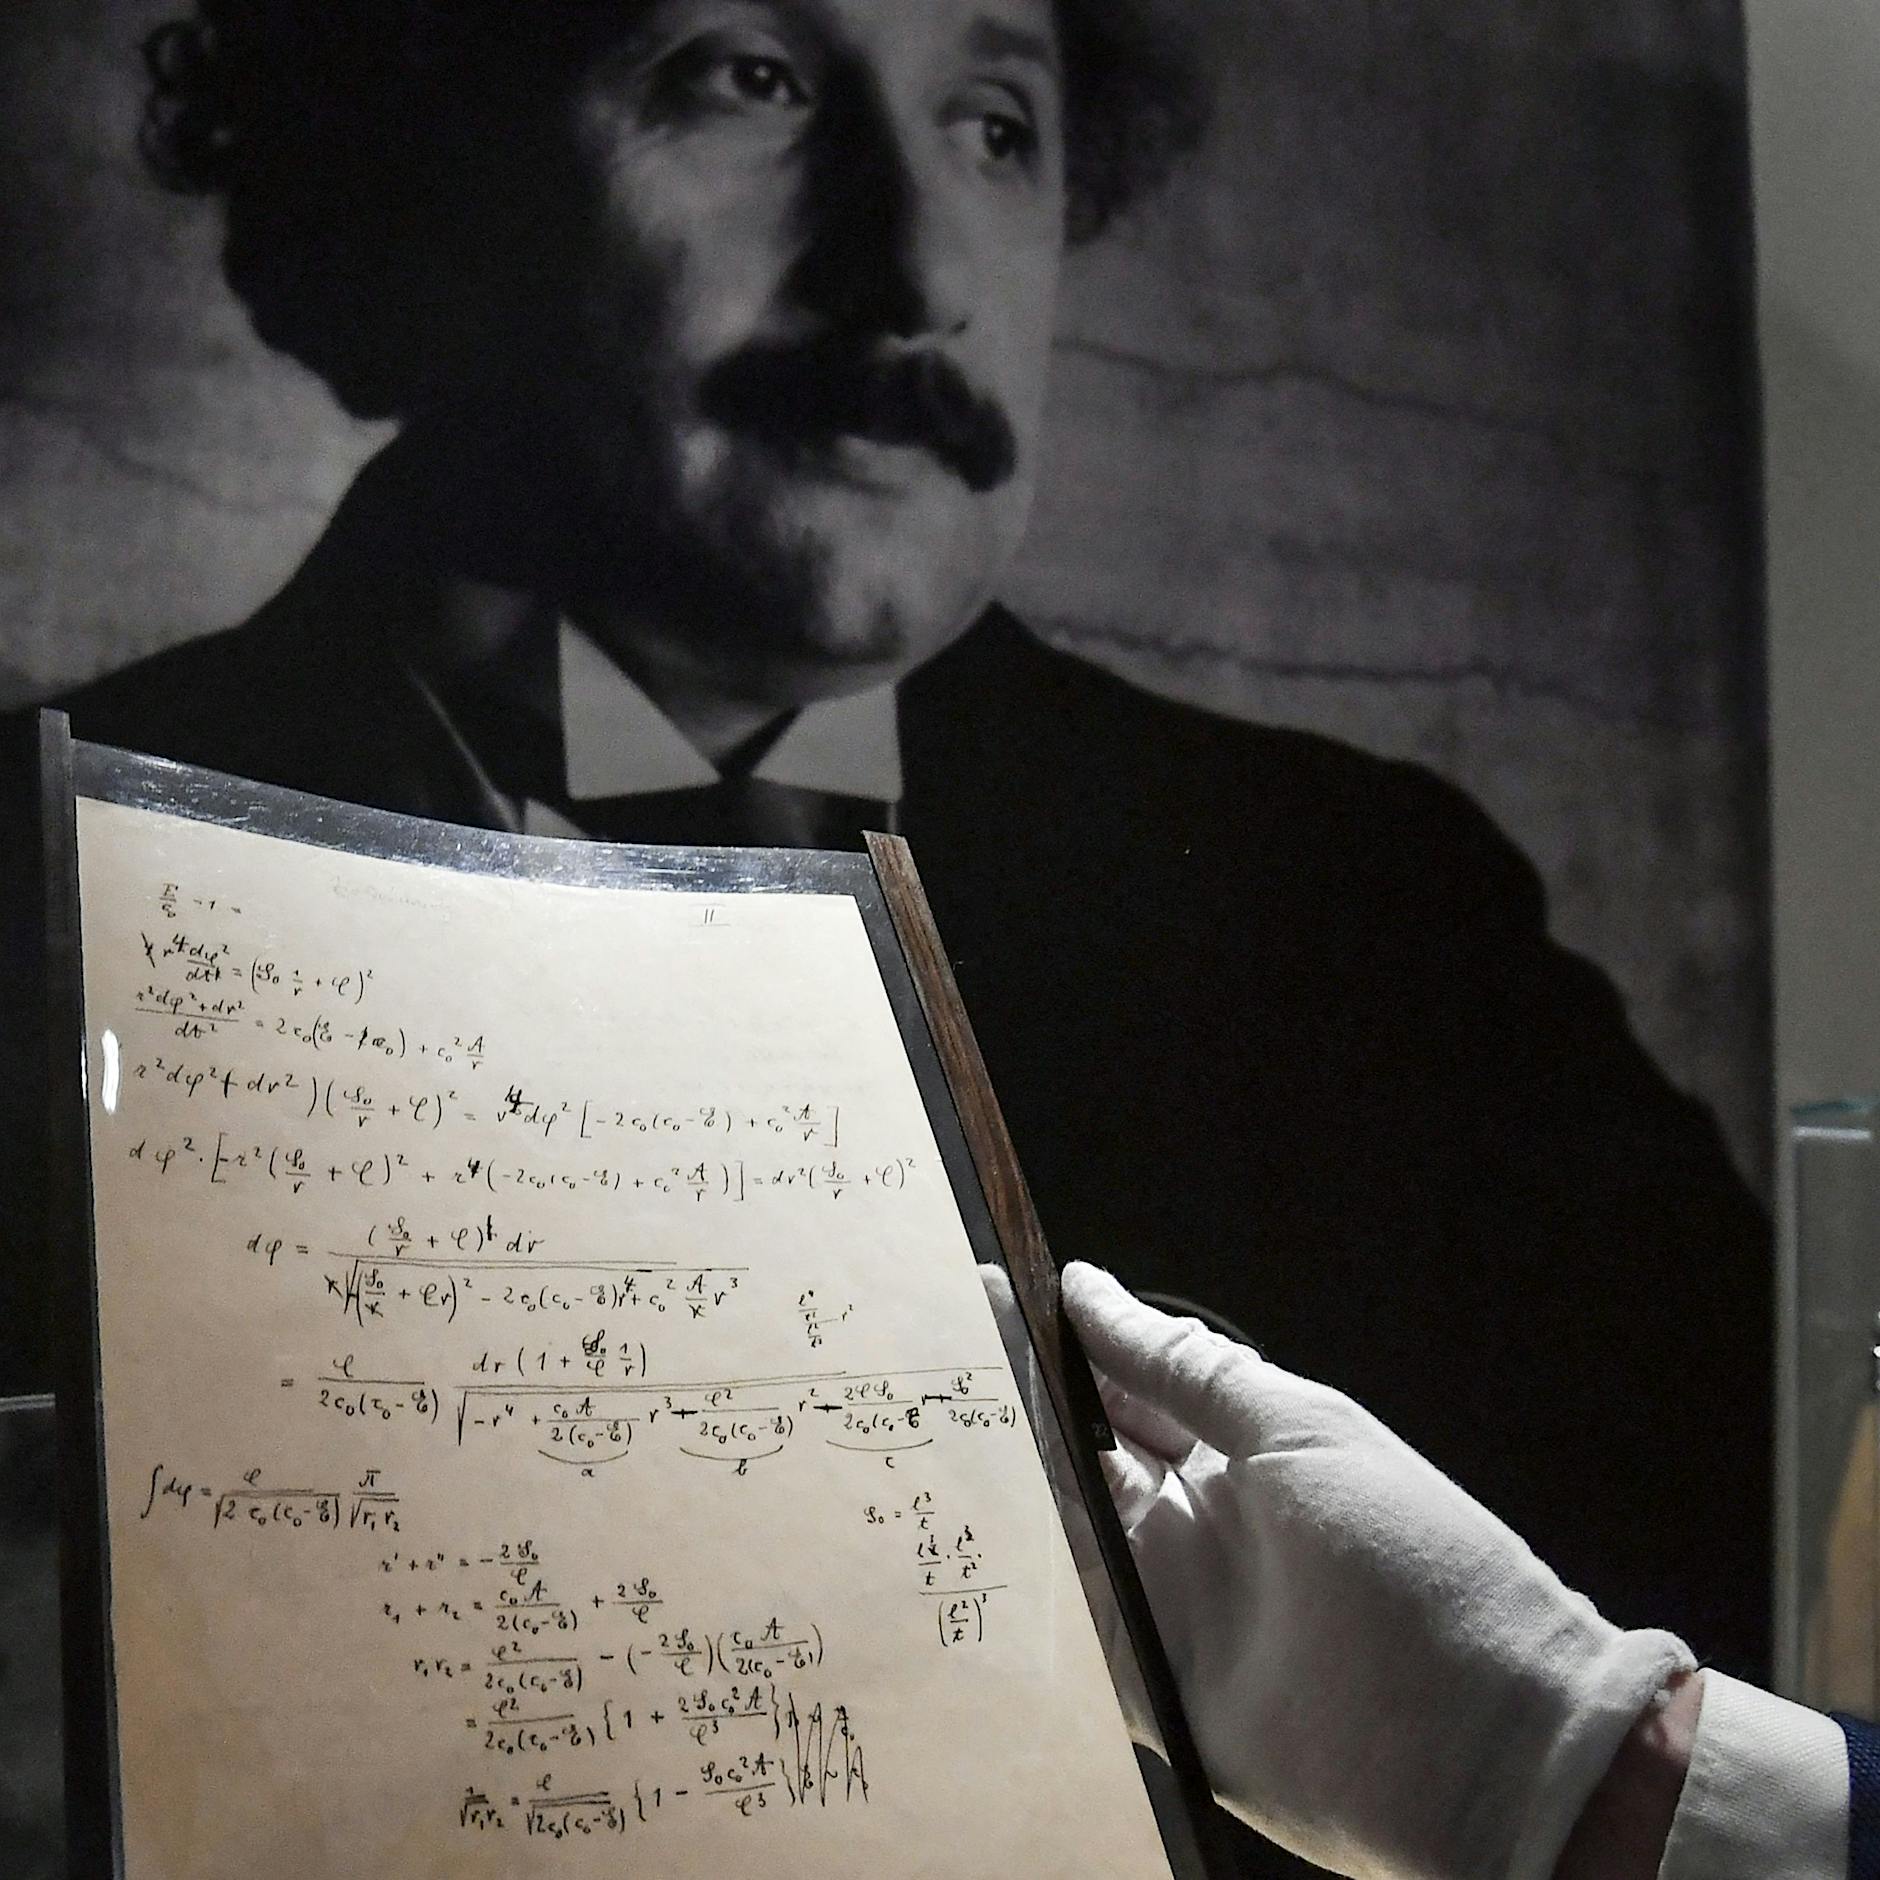 11
E/S₀ - 1 =
r⁴dφ²/dt² = (S₀ 1/r + φ)²
(r²dφ² + dr²)/dt² = 2c₀(ℰ - c₀) + c₀² A/r
r²dφ² + dr²)(S₀/r + φ)² = r⁴dφ² [-2c₀(c₀-ℰ) + c₀² A/r]
dφ²·[-r²(S₀/r + φ)² + r⁴(-2c₀(c₀-ℰ) + c₀² A/r)] = dr²(S₀/r + φ)²
dφ = (S₀/r + φ) dr
√-(S₀ + φr)² - 2c₀(c₀-ℰ)r⁴ + c₀² A r³
= φ/2c₀(c₀-ℰ) dr(1 + S₀/φ 1/r)
√-r⁴ + c₀A/2(c₀-ℰ) r³ - φ²/2c₀(c₀-ℰ) r² - 2φS₀/2c₀(c₀-ℰ) r - S₀²/2c₀(c₀-ℰ)
a b c
∫dφ = φ/√2c₀(c₀-ℰ) π/√r₁r₂
S₀ = l³/t
r' + r'' = -2S₀/φ
l³/t · l²/t²
r₁ + r₂ = c₀A/2(c₀-ℰ) + 2S₀/φ
(l²/t)³
r₁r₂ = φ²/2c₀(c₀-ℰ) - (-2S₀/φ)(c₀A/2(c₀-ℰ))
= φ²/2c₀(c₀-ℰ) {1 + 2S₀c₀²A/φ³}
1/√r₁r₂ = φ/√2c₀(c₀-ℰ) {1 - S₀c₀²A/φ³}